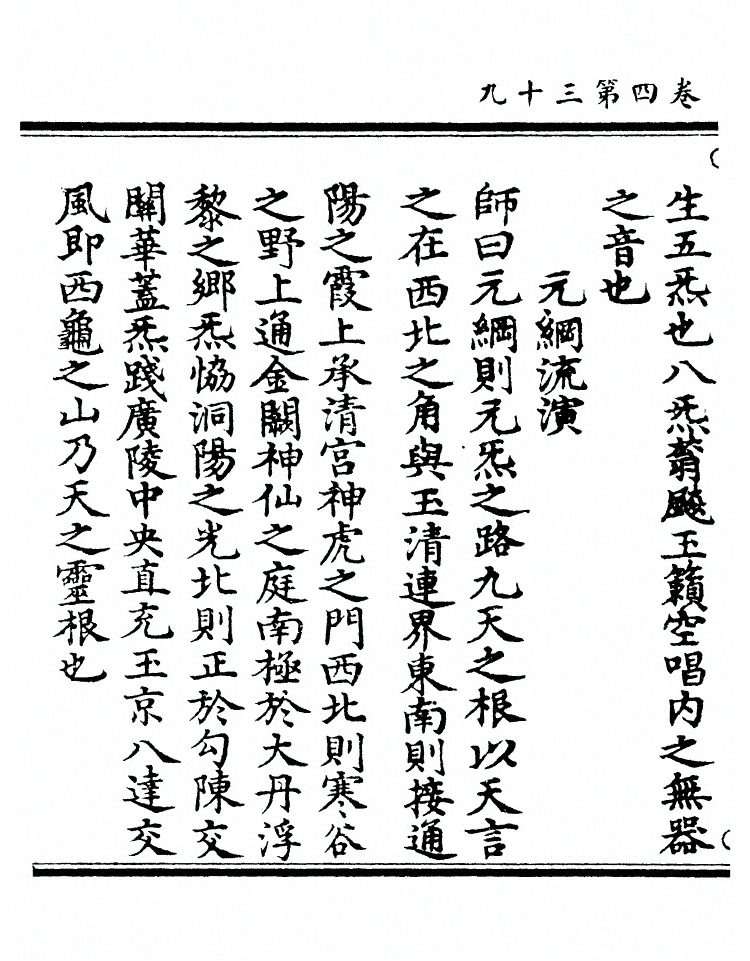 卷四第三十九
生五炁也八炁蓊颷玉籟空唱内之無器
之音也
元綱流演
師曰元綱則元炁之路九天之根以天言
之在西北之角與玉清連界東南則接通
陽之霞上承清宫神虎之門西北則寒谷
之野上通金闕神仙之庭南極於大丹浮
黎之鄉炁恊洞陽之光北則正於勾陳交
關華蓋炁踐廣陵中央直充玉京八達交
風即西龜之山乃天之靈根也